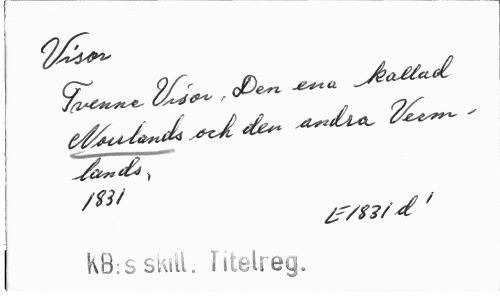 Visor
Tvenne Visor, Den ena kallad
Norrlands och den andra Verm-
lands,
1831
E 1831 d¹
KB:s skill. Titelreg.